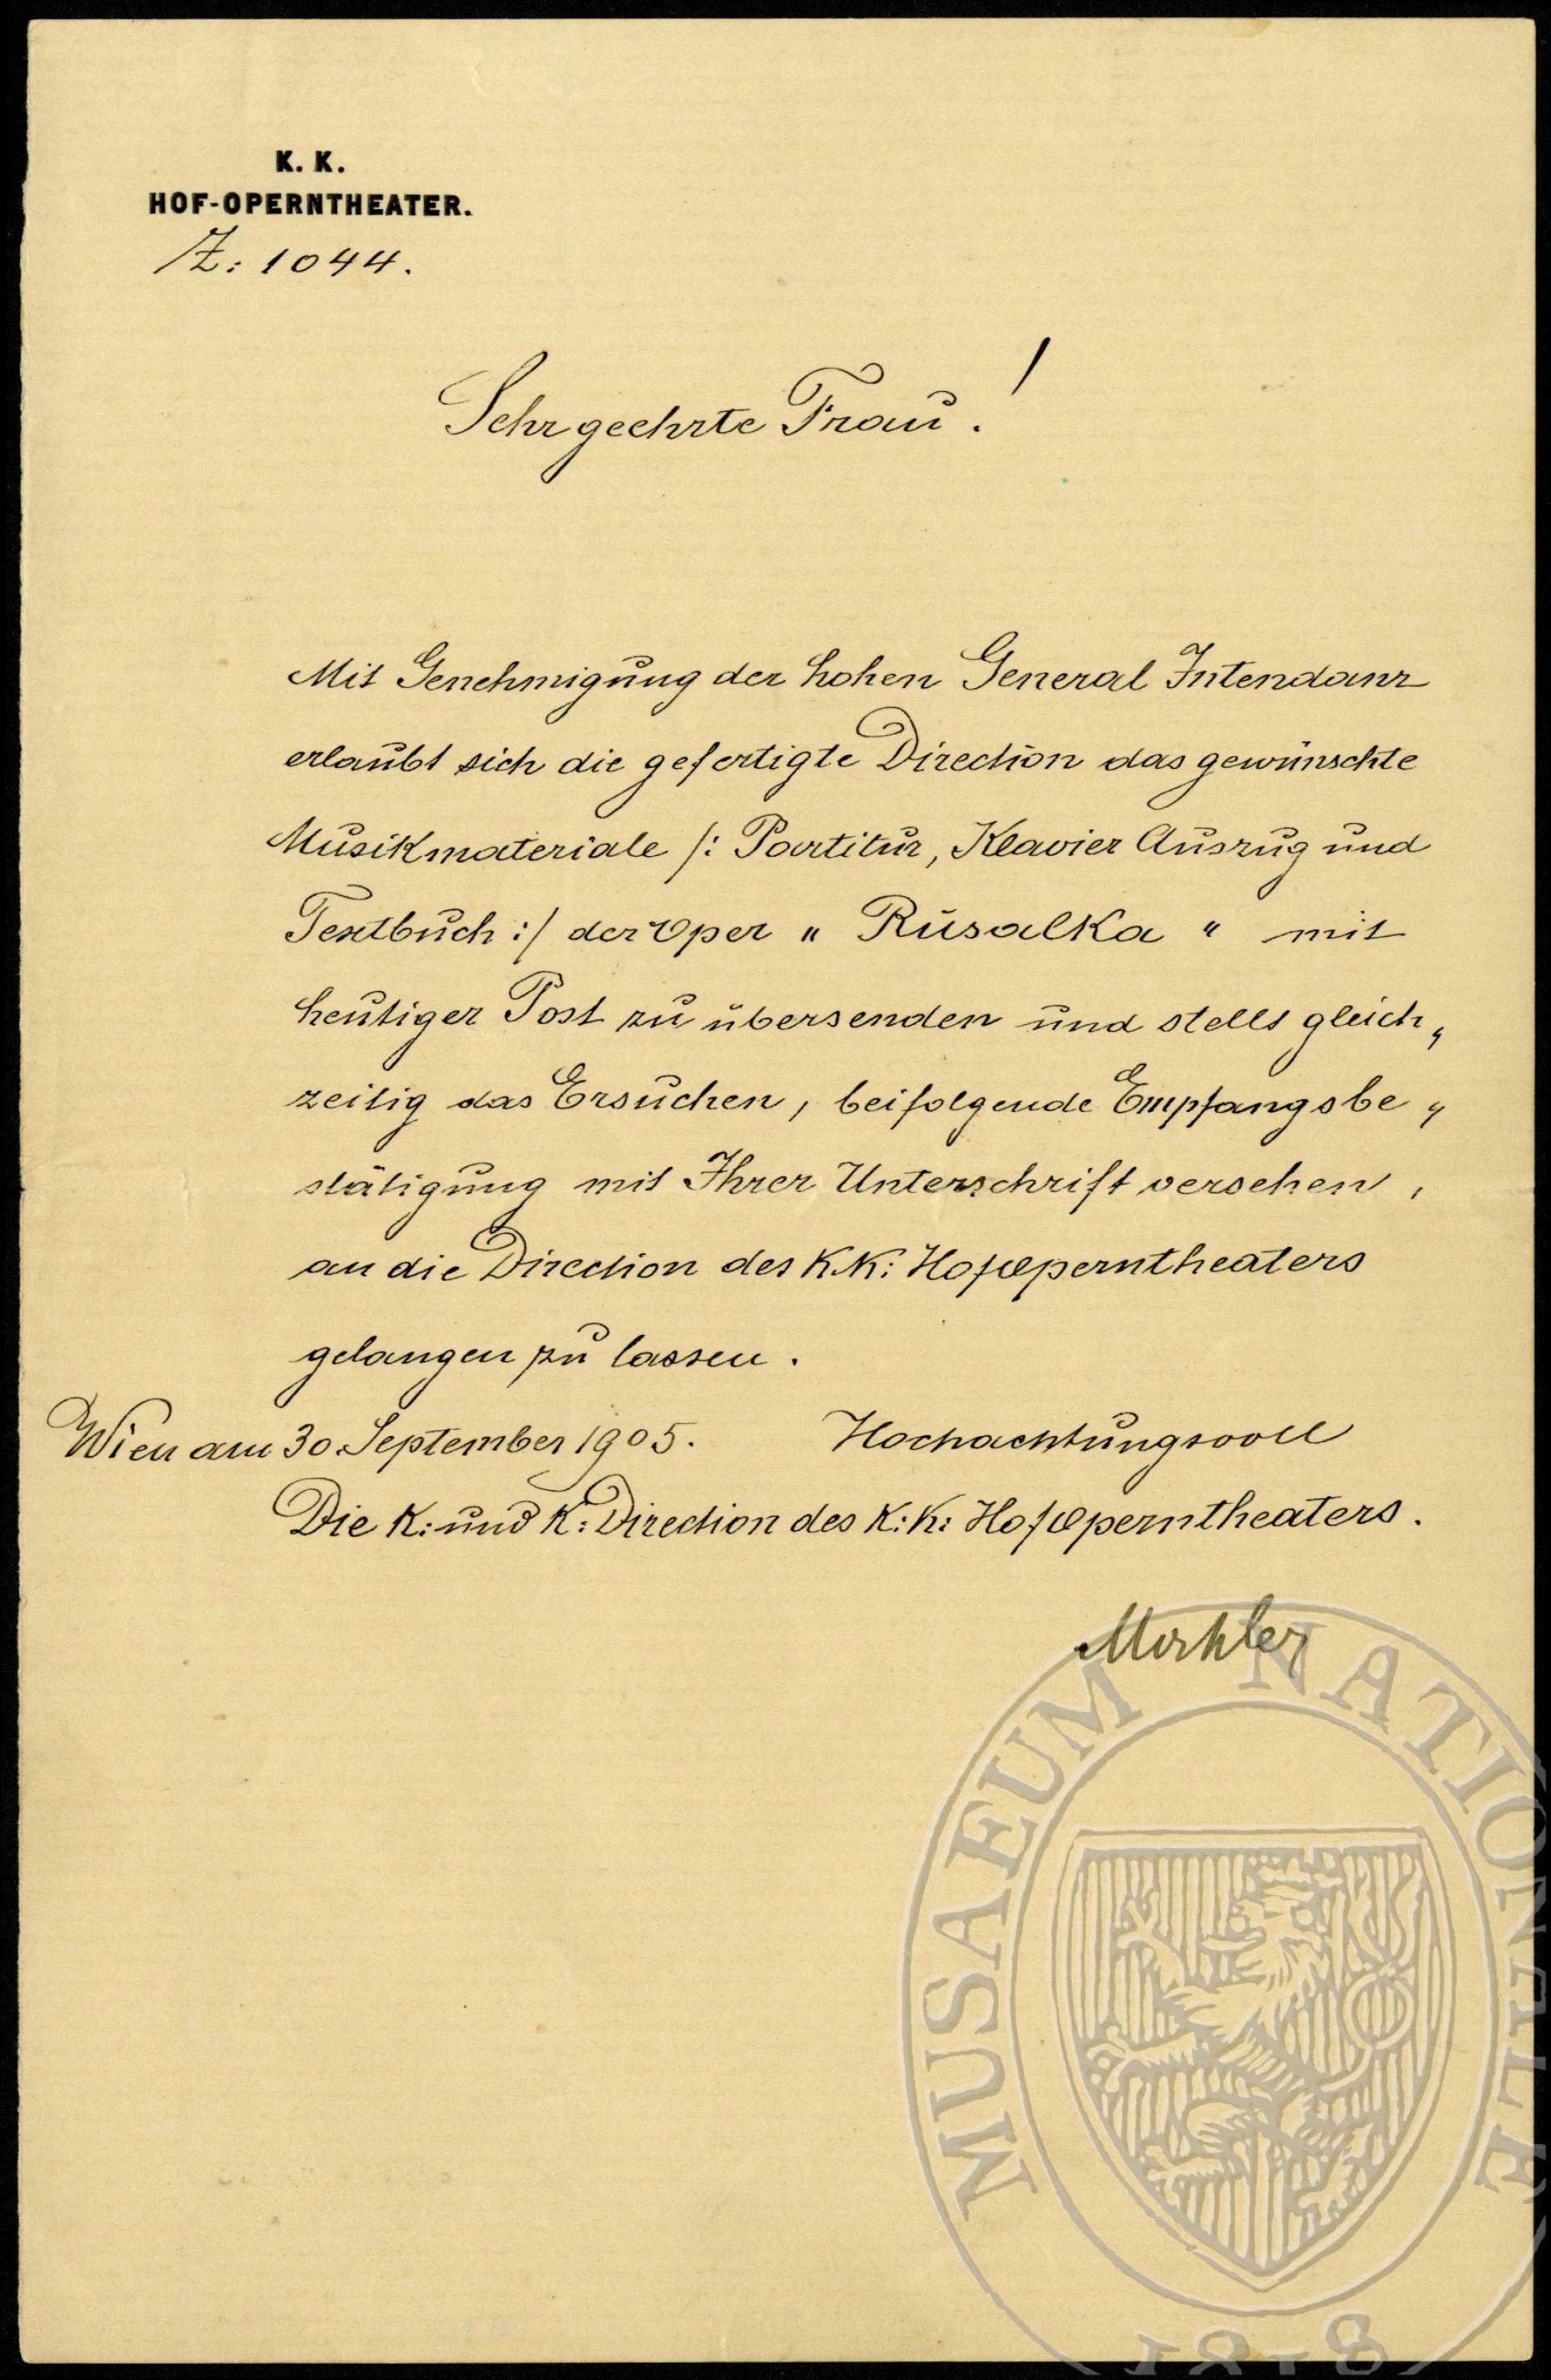 K. K.
HOF-OPERNTHEATER.
Z: 1044.
Sehr geehrte Frau!
Mit Genehmigung der hohen General Intendanz
erlaubt sich die gefertigte Direction das gewünschte
Musikmateriale /: Partitur, Klavier Auszug und
Textbuch :/ der Oper " Rusalka " mit
heutiger Post zu übersenden und stellt gleich„
zeitig das Ersuchen, beifolgende Empfangsbe„
stätigung mit Ihrer Unterschrift versehen,
an die Direction des K.K: Hofoperntheaters
gelangen zu lassen.
Wien am 30. September 1905. Hochachtungsvoll
Die K: und K: Direction des K: K: Hofoperntheaters.
Mahler
MUSAEUM NATIONALE
1818